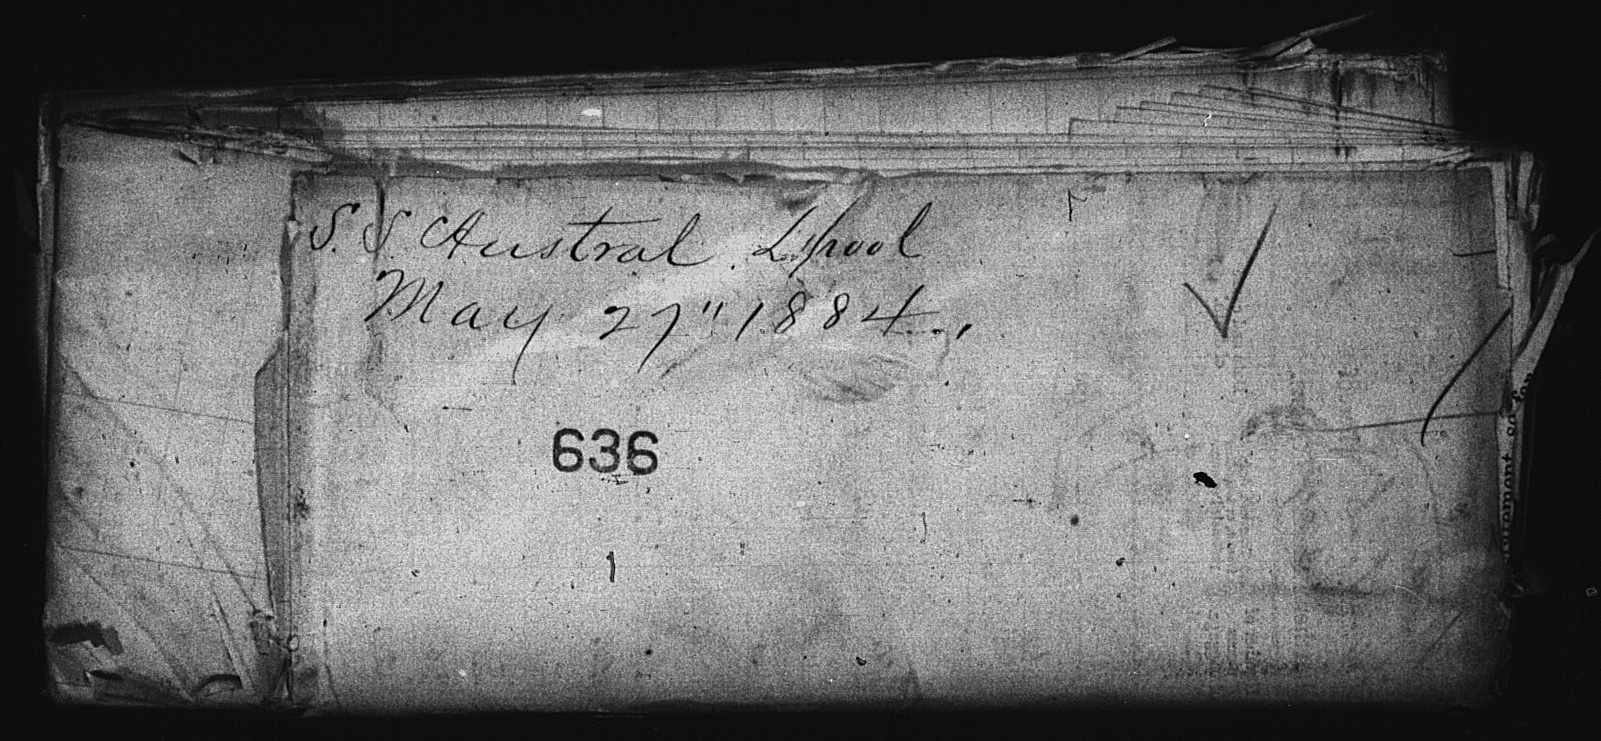 S. S. Austral. L'pool
May 27" 1884.,
636
1